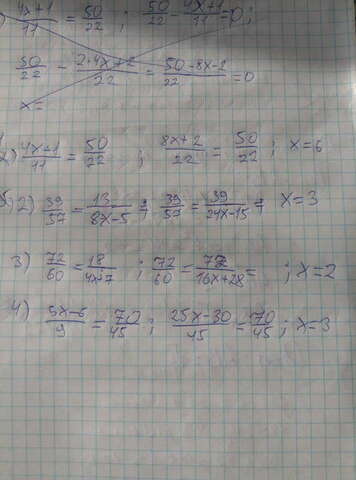 ) 4x+1/11 = 50/22 ; 50/22 - 4x+1/11 = 0 ;
50/22 - 2·4x+2/22 = 50-8x-2/22 = 0
x =
2) 4x+1/11 = 50/22 ; 8x+2/22 = 50/22 ; x=6
2) 39/57 = 13/8x-5 ; 39/57 = 39/24x-15 ; x=3
3) 72/60 = 18/4x+7 ; 72/60 = 72/16x+28 = ; x=2
4) 5x-6/9 = 70/45 ; 25x-30/45 = 70/45 ; x=3